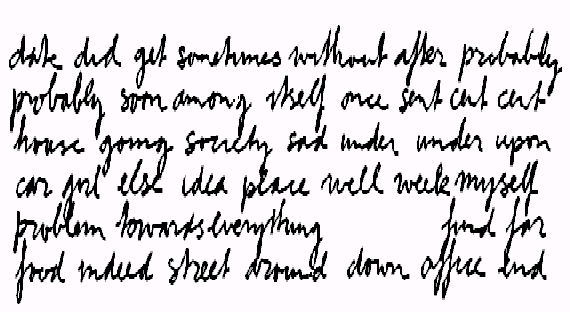 date did get sometimes without after probably
probably soon among itself once sent cut cut
house going society sad under under upon
car girl else idea place well week myself
problem towards everything find far
food indeed street around down office end